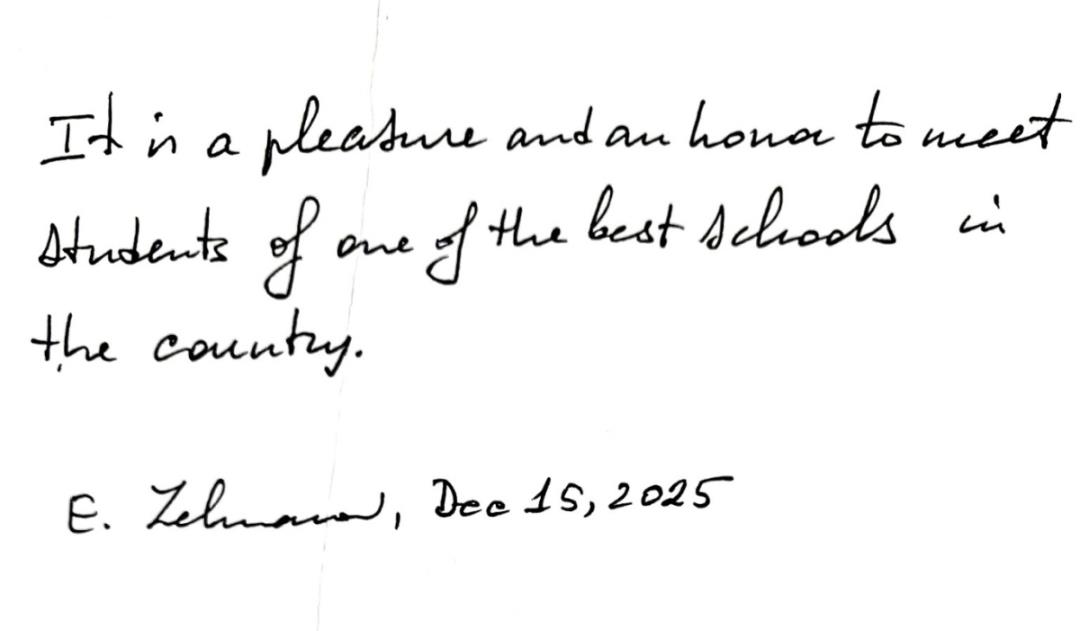 It is a pleasure and an honor to meet
students of one of the best schools in
the country.
E. Zelmanov, Dec 15, 2025